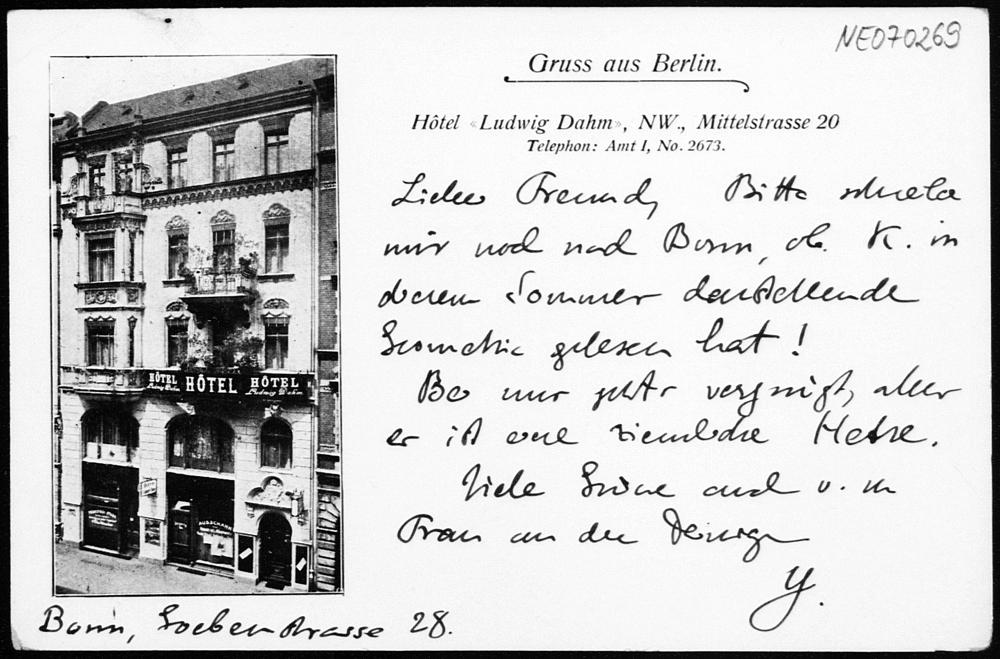 NE070269
Gruss aus Berlin.
Hôtel «Ludwig Dahm», NW., Mittelstrasse 20
Telephon: Amt I, No. 2673.
Lieber Freund, Bitte schreibe
mir noch nach Bonn, ob K. in
diesem Sommer darstellende
Geometrie gelesen hat!
Bei mir geht's vergnügt, aber
er ist eine ziemliche Hetze.
Viele Grüsse auch v. m
Frau an die Deinige
Y.
HÔTEL Ludwig Dahm HÔTEL HÔTEL Ludwig Dahm
AUSSCHANK
Bonn, Goebenstrasse 28.